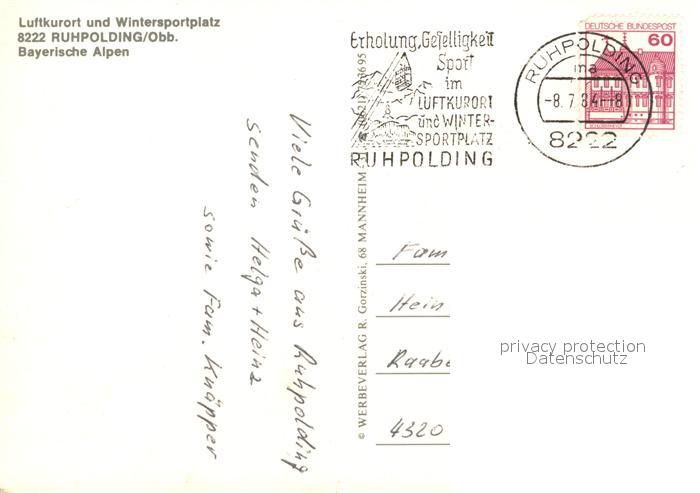 Luftkurort und Wintersportplatz
8222 RUHPOLDING/Obb.
Bayerische Alpen
Erholung, Geselligkeit
Sport
im
LUFTKURORT
und WINTER-
SPORTPLATZ
RUHPOLDING
RUHPOLDING
ma
-8.7.84-18
8222
DEUTSCHE BUNDESPOST
60
Viele Grüße aus Ruhpolding
senden Helga + Heinz
sowie Fam. Knäpper
© WERBEVERLAG R. Gorzinski, 68 MANNHEIM
Fam
Hein
Raabe
4320
privacy protection
Datenschutz